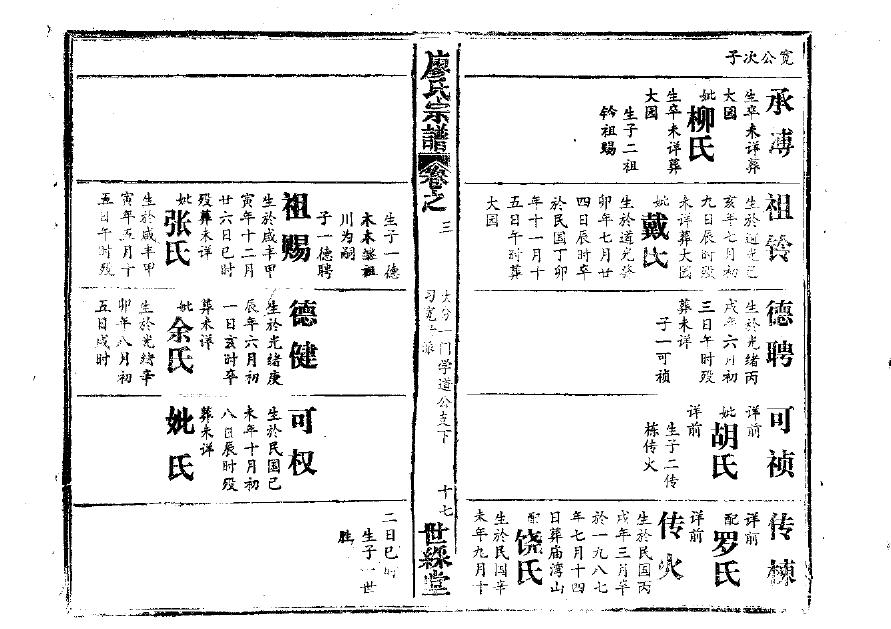 宽公次子
承溥
生卒未详葬
大园
妣
柳氏
生卒未详葬
大园
生子二祖
钤祖赐
祖铃
生於道光己
亥年七月初
九日辰时殁
未详葬大园
妣
戴氏
生於道光癸
卯年七月廿
四日辰时卒
於民国丁卯
年十一月十
五日午时葬
大园
德聘
生於光绪丙
戌年六月初
三日午时殁
葬未详
子一可祯
可祯
详前
妣
胡氏
详前
生子二传
栋传火
传栋
详前
配
罗氏
详前
传火
生於民国丙
戌年三月卒
於一九八七
年七月十四
日葬庙湾山
配
饶氏
生於民国辛
未年九月十
廖氏宗谱
卷之
三
大分一门学道公支下
习宽公派
十七
世綵堂
生子一德
木未继祖
川为嗣
子一德聘
祖赐
生於咸丰甲
寅年十二月
廿六日巳时
殁葬未详
妣
张氏
生於咸丰甲
寅年五月十
五日午时殁
德健
生於光绪庚
辰年六月初
一日亥时卒
葬未详
妣
余氏
生於光绪辛
卯年八月初
五日戌时
可权
生於民国己
未年十月初
八日辰时殁
葬未详
妣氏
二日巳时
生子一世
胜